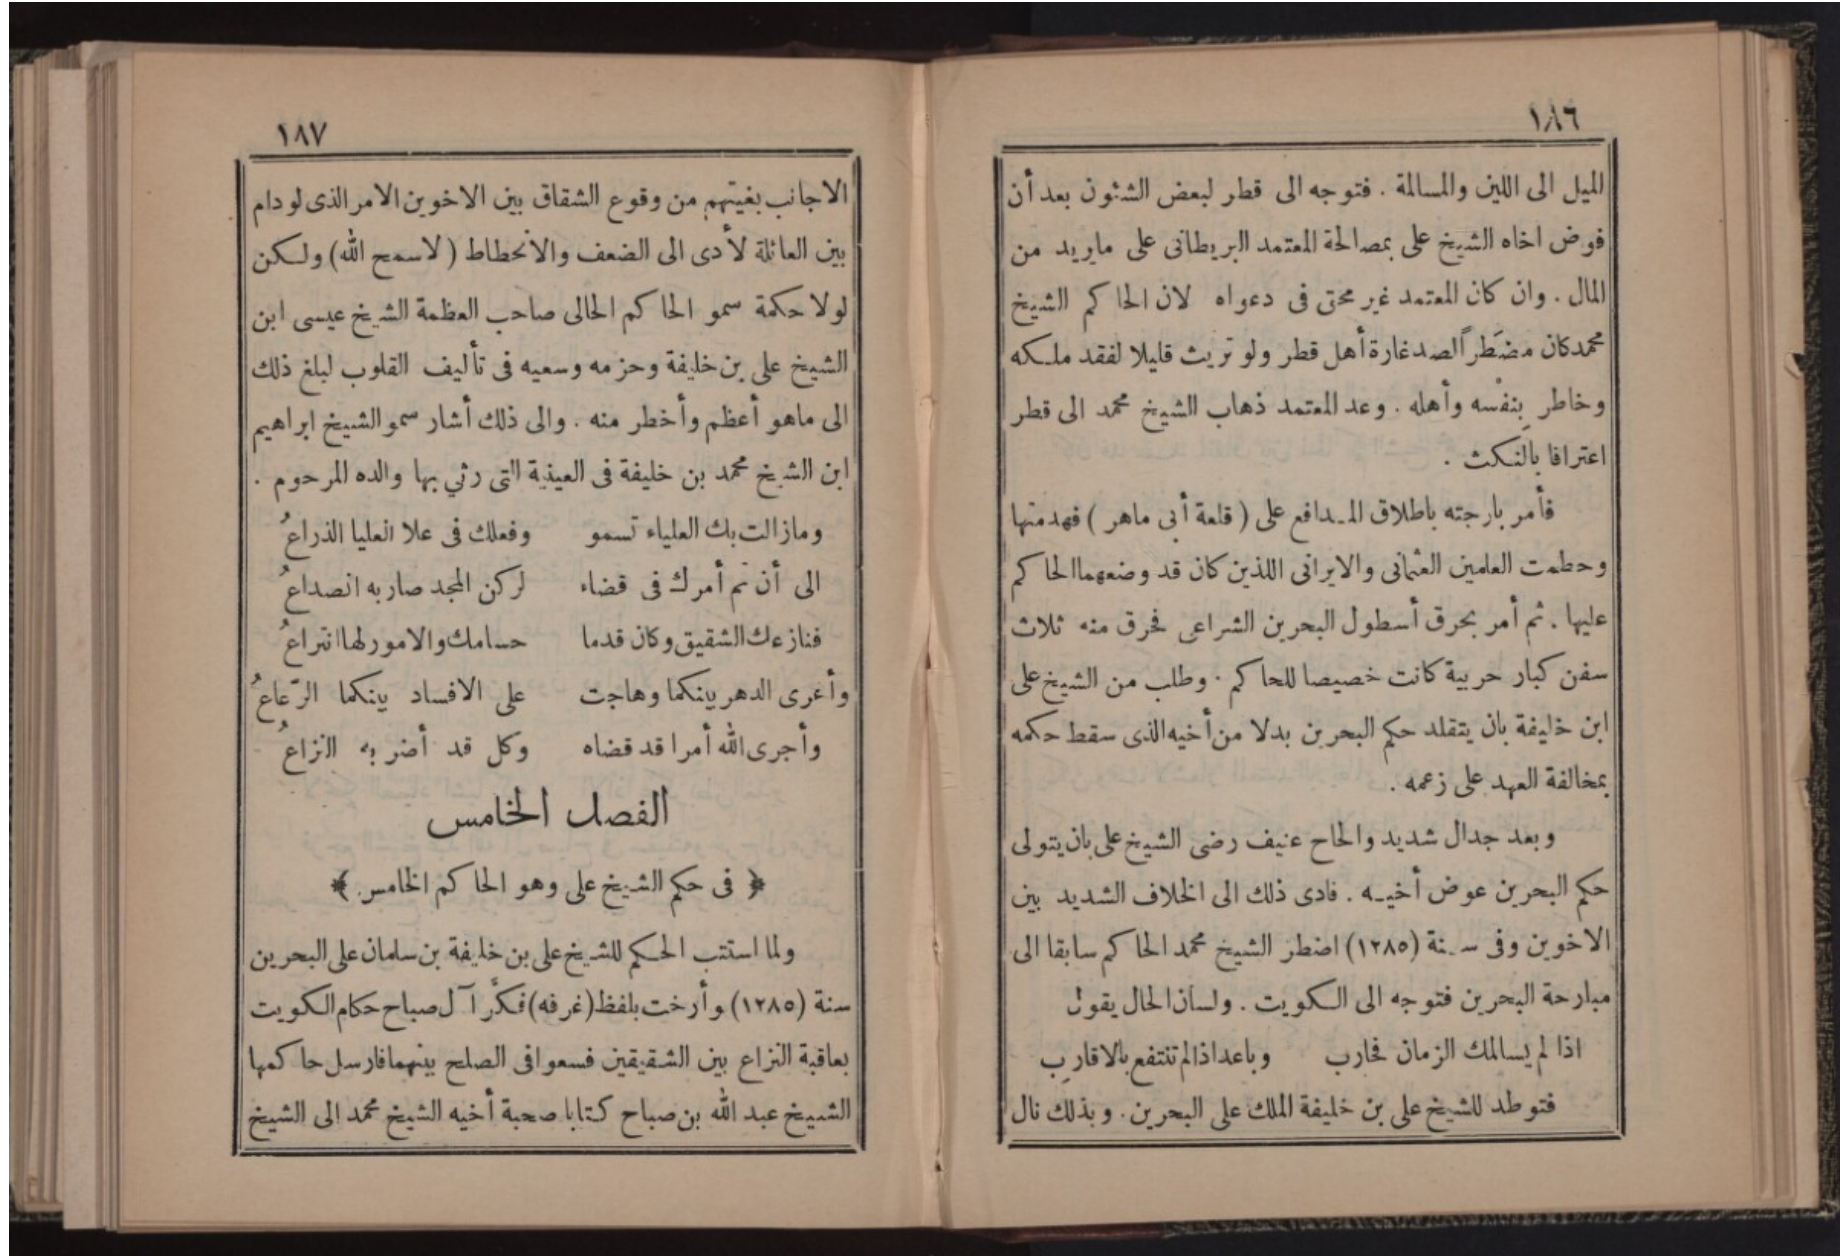 ١٨٦
الميل الى اللين والمسالمة . فتوجه الى قطر لبعض الشئون بعد أن
فوض اخاه الشيخ على بمصالحة المعتمد البريطانى على مايريد من
المال . وان كان المعتمد غير محق فى دعواه لان الحاكم الشيخ
محمد كان مضطراً لصد غارة أهل قطر ولو تريث قليلا لفقد ملكه
وخاطر بنفسه وأهله . وعد المعتمد ذهاب الشيخ محمد الى قطر
اعترافا بالنكث .
فأمر بارجته باطلاق المدافع على ( قلعة أبى ماهر ) فهدمتها
وحطمت العلمين العثمانى والايرانى اللذين كان قد وضعهما الحاكم
عليها . ثم أمر بحرق أسطول البحرين الشراعى فحرق منه ثلاث
سفن كبار حربية كانت خصيصا للحاكم . وطلب من الشيخ على
ابن خليفة بان يتقلد حكم البحرين بدلا من أخيه الذى سقط حكمه
بمخالفة العهد على زعمه .
وبعد جدال شديد والحاح عنيف رضى الشيخ على بان يتولى
حكم البحرين عوض أخيه . فادى ذلك الى الخلاف الشديد بين
الاخوين وفى سنة (١٢٨٥) اضطر الشيخ محمد الحاكم سابقا الى
مبارحة البحرين فتوجه الى الكويت . ولسان الحال يقول
اذا لم يسالمك الزمان فحارب وباعد اذا لم تنتفع بالاقارب
فتوطد للشيخ على بن خليفة الملك على البحرين . وبذلك نال
١٨٧
الاجانب بغيتهم من وقوع الشقاق بين الاخوين الامر الذى لو دام
بين العائلة لأدى الى الضعف والانحطاط ( لاسمح الله) ولكن
لولا حكمة سمو الحاكم الحالى صاحب العظمة الشيخ عيسى ابن
الشيخ على بن خليفة وحزمه وسعيه فى تأليف القلوب لبلغ ذلك
الى ماهو أعظم وأخطر منه . والى ذلك أشار سمو الشيخ ابراهيم
ابن الشيخ محمد بن خليفة فى العينية التى رثي بها والده المرحوم .
ومازالت بك العلياء تسمو وفعلك فى علا العليا الذراعُ
الى أن تم أمرك فى قضاء لركن المجد صار به انصداعُ
فنازعك الشقيق وكان قدما حسامك والامور لها انتراعُ
وأغرى الدهر بينكما وهاجت على الافساد بينكما الرّعاعُ
وأجرى الله أمرا قد قضاه وكل قد أضر به النزاعُ
الفصل الخامس
﴿ فى حكم الشيخ على وهو الحاكم الخامس . ﴾
ولما استتب الحكم للشيخ على بن خليفة بن سلمان على البحرين
سنة (١٢٨٥) وأرخت بلفظ (غرفه) فكّر آل صباح حكام الكويت
بعاقبة النزاع بين الشقيقين فسعوا فى الصلح بينهما فارسل حاكمها
الشيخ عبد الله بن صباح كتابا صحبة أخيه الشيخ محمد الى الشيخ